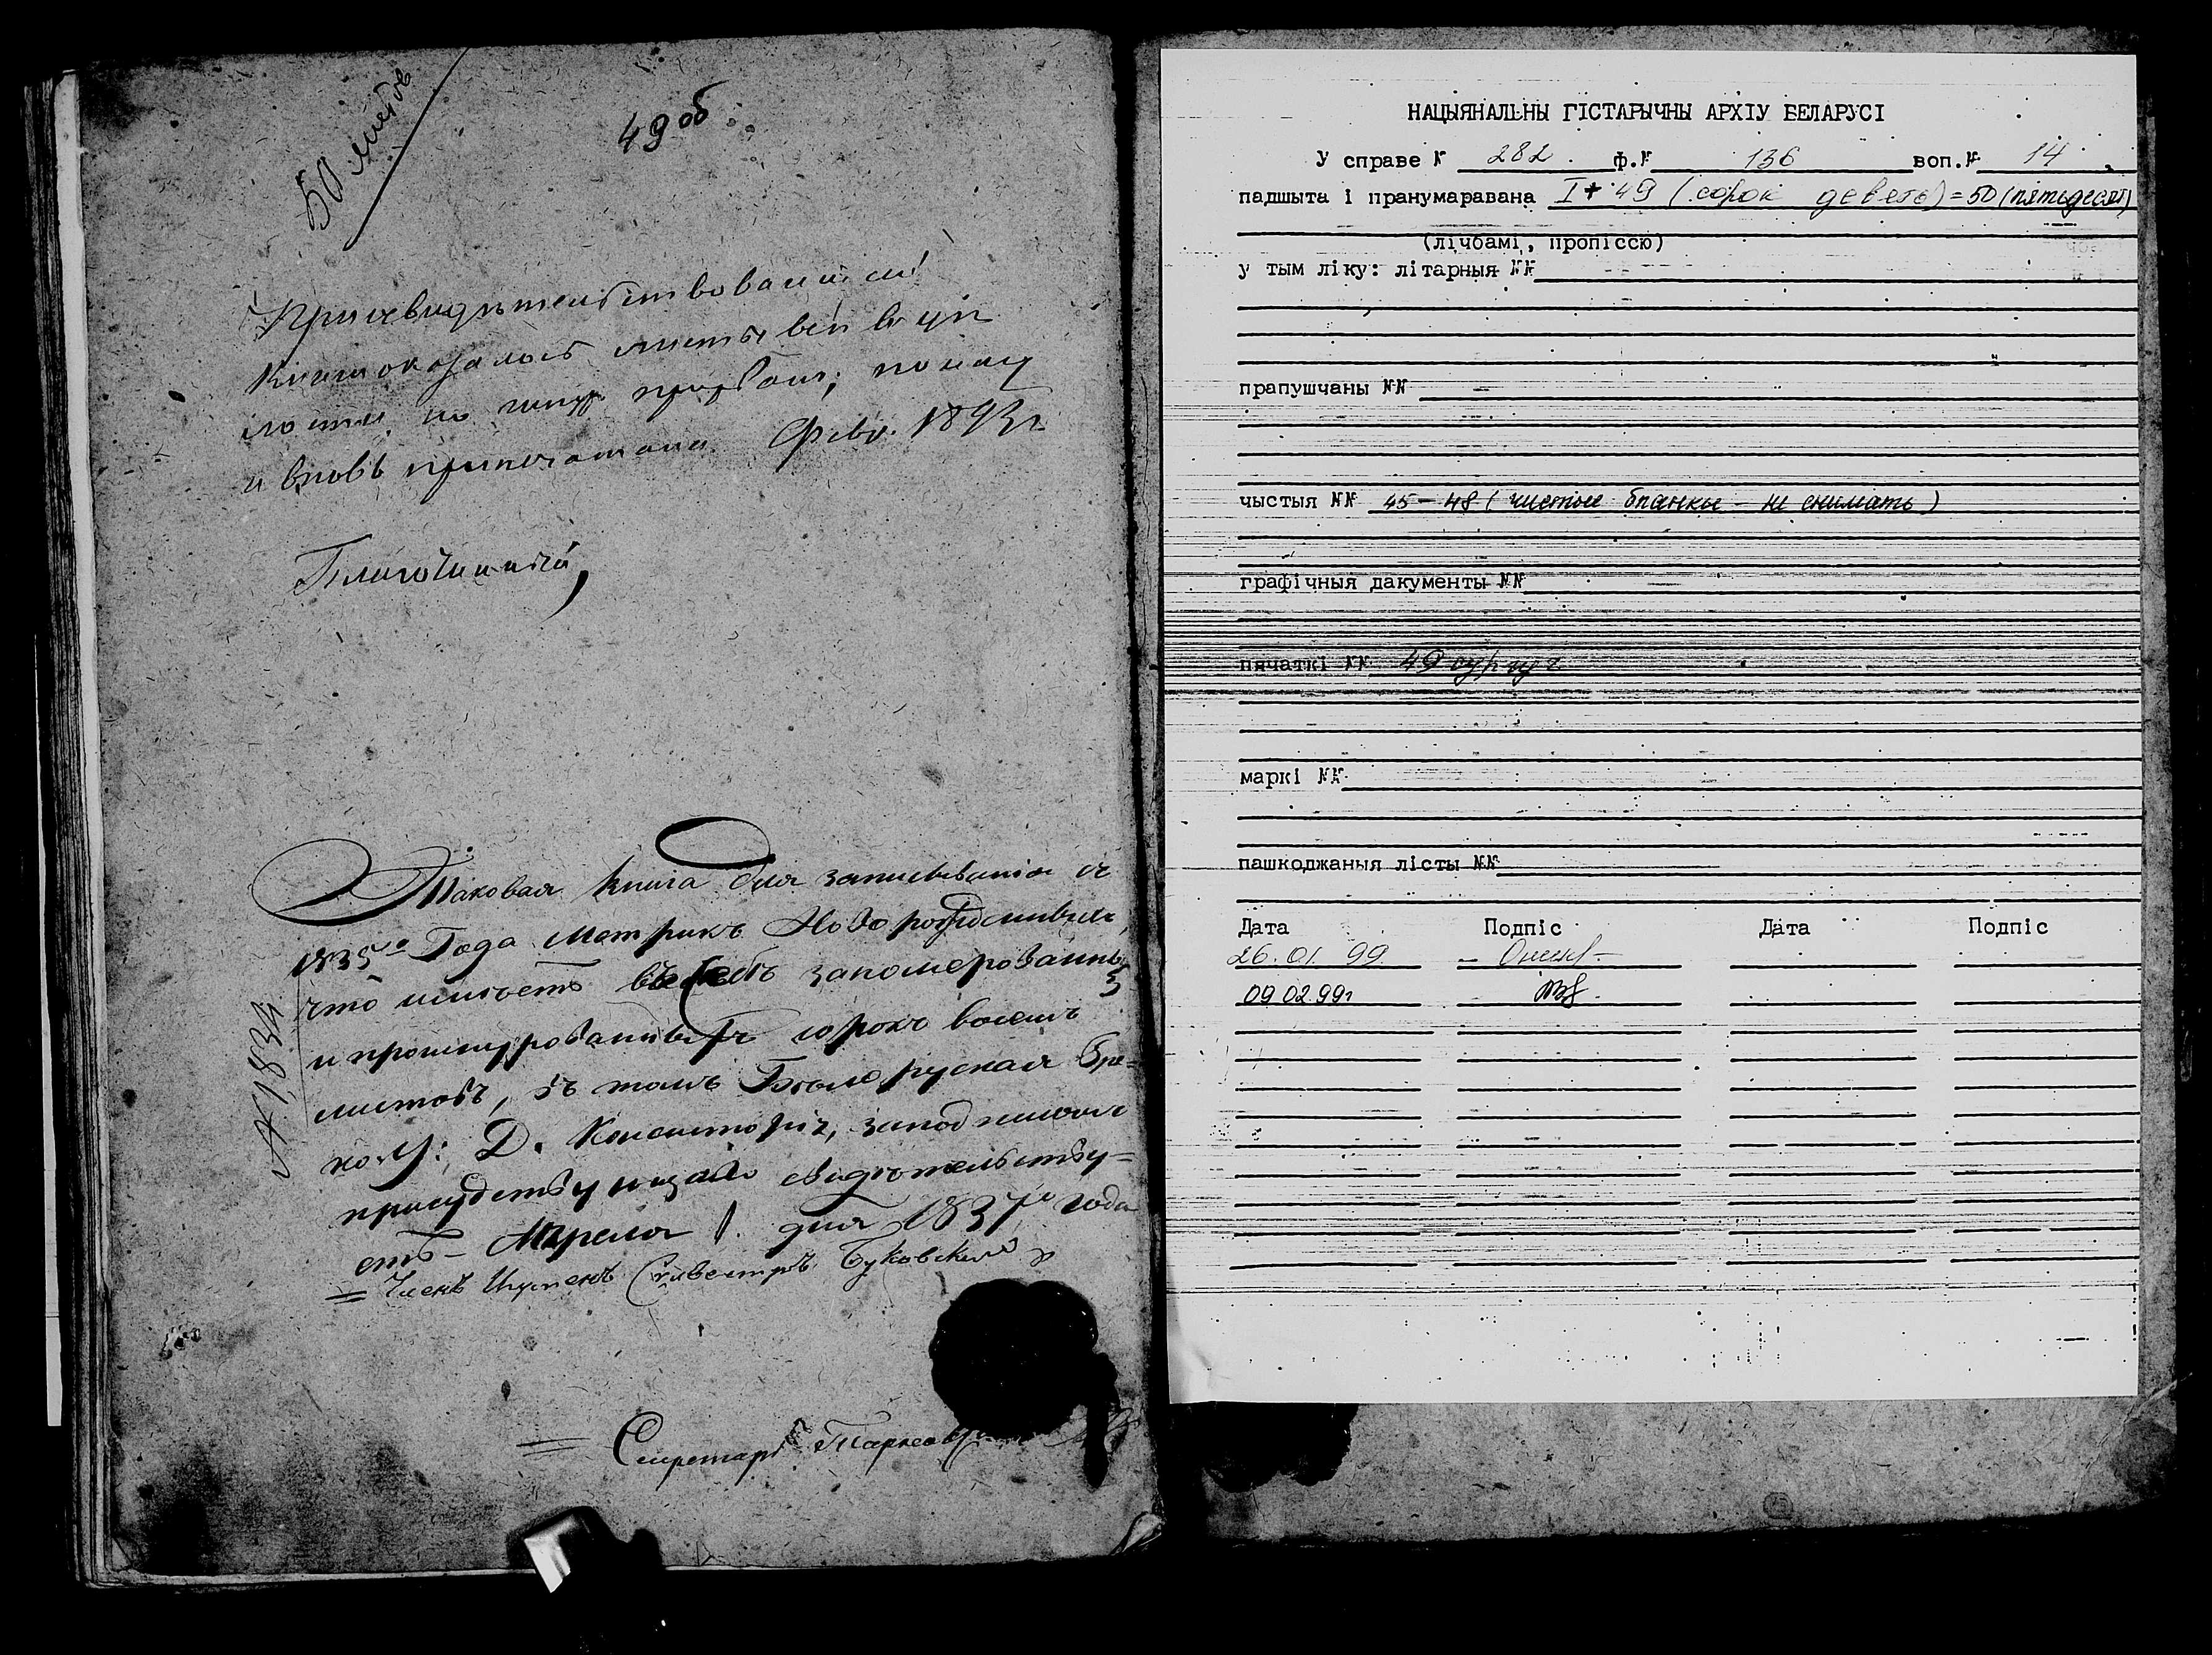 50 листов
49 об
При освидетельствовании сей
книги оказалось листы все в це
лости, но шнур
и вновь припечатана. Февр. 1893 г
Благочинный
Таковая книга для записыванія съ
1835го Года Метрикъ Новорожденныхъ
что имѣетъ въ себѣ занумерованныхъ
и прошнурованныхъ сорокъ восемь
листовъ, въ томъ Бѣлоруская Гре=
ко. У: Д. Консисторія, за подписомъ
присудствующаго свидѣтельству=
етъ – Апреля 1. дня 1837го года
= Членъ Игуменъ Сильвестръ Буковскій
= Секретарь
№ 1834
НАЦЫЯНАЛЬНЫ ГІСТАРЫЧНЫ АРХІУ БЕЛАРУСІ
У справе № 282. ф.№ 136 воп.№ 14
падшыта і пранумаравана I + 49 (сорок девять) = 50 (пятьдесят)
(лічбамі, пропіссю)
у тым ліку: літарныя №№
прапушчаны №№ –
чыстыя №№ 45 – 48 (чистые бланки – не снимать)
графічныя дакументы №№
пячаткі №№ 49 сургуч
маркі №№
пашкоджаныя лісты №№
Дата Подпіс Дата Подпіс
26.01.99
09.02.99г